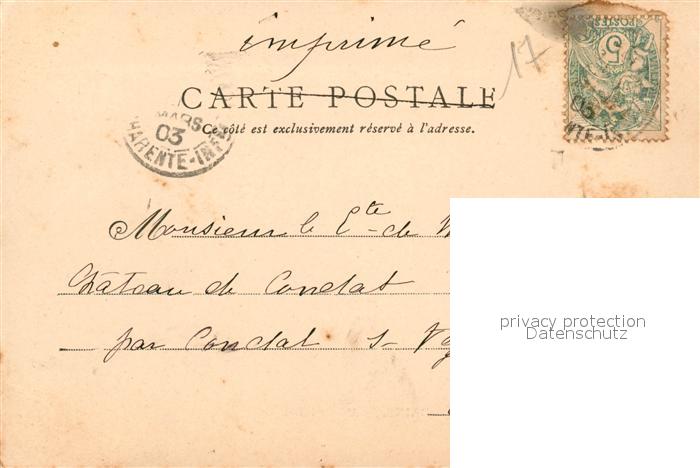 imprimé
17
CARTE POSTALE
Ce côté est exclusivement réservé à l'adresse.
MARS
03
CHARENTE-INF
5
POSTES
03
NTE-IN
Monsieur le Cte de
Château de Condat
par Condat s-
privacy protection
Datenschutz